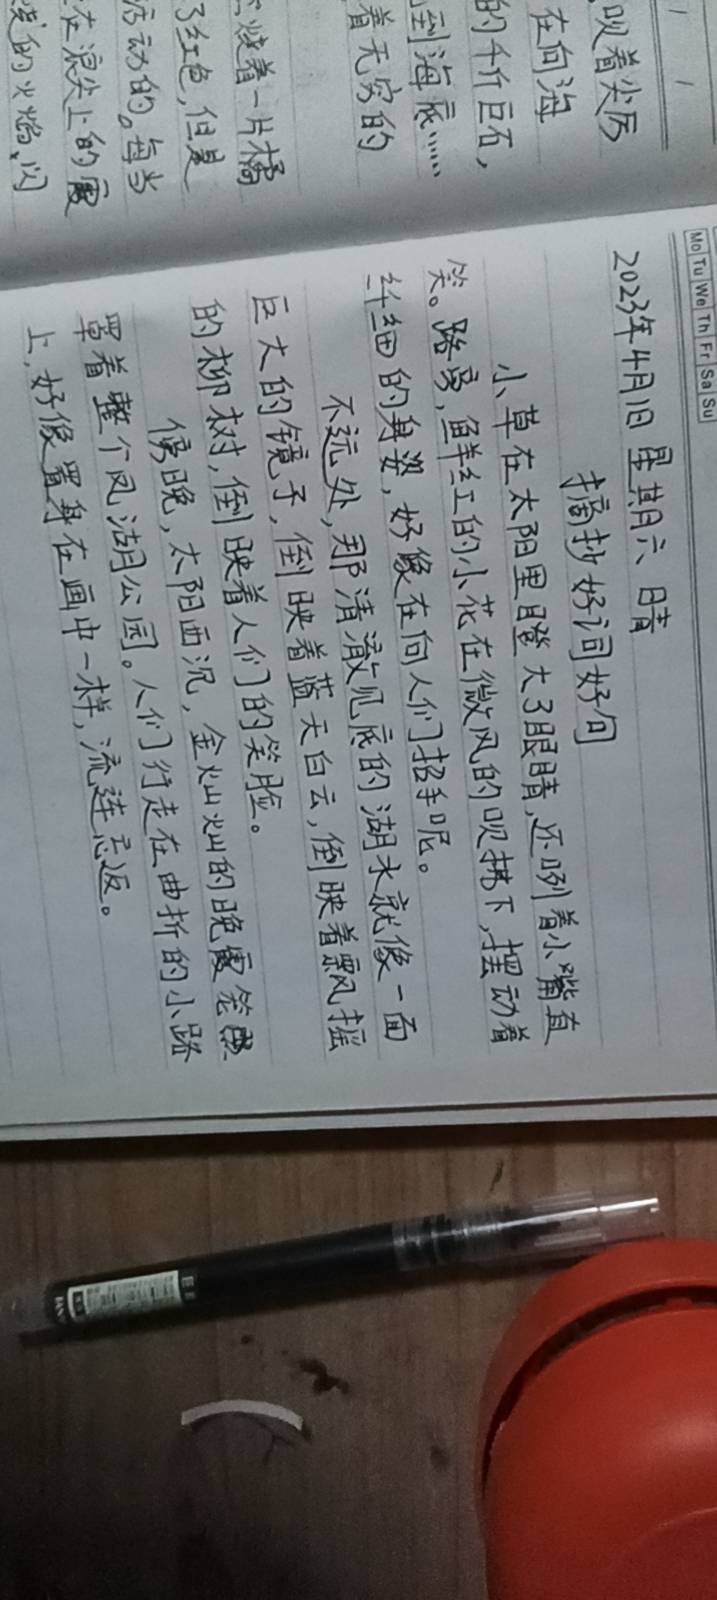 吹着尖厉
在向海
的千斤巨石,
倒海底……
着无穷的
燒着一片橘
了红色,但是
活动的。每当
在浪尖上的霞
的火焰,闪
Mo Tu We Th Fr Sa Su
2023年4月1日 星期六 晴
摘抄好词好句
小草在太阳里瞪大了眼睛,还咧着小嘴直
笑。路旁,鲜红的小花在微风的吹拂下,摆动着
纤细的身姿,好像在向人们招手呢。
不远处,那清澈见底的湖水就像一面
巨大的镜子,倒映着蓝天白云,倒映着飘摇
的柳树,倒映着人们的笑脸。
傍晚,太阳西沉,金灿灿的晚霞笼
罩着整个凤湖公园。人们行走在曲折的小路
上,好像置身在画中一样,流连忘返。